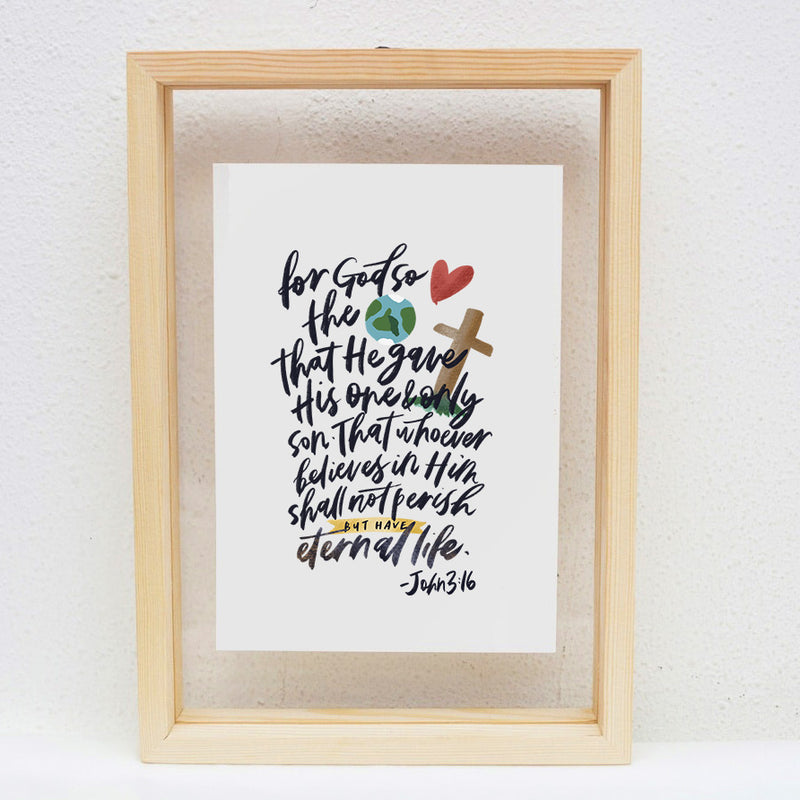 for God so
the
that He gave
His one & only
son. That whoever
believes in Him
shall not perish
BUT HAVE
eternal life.
-John 3:16